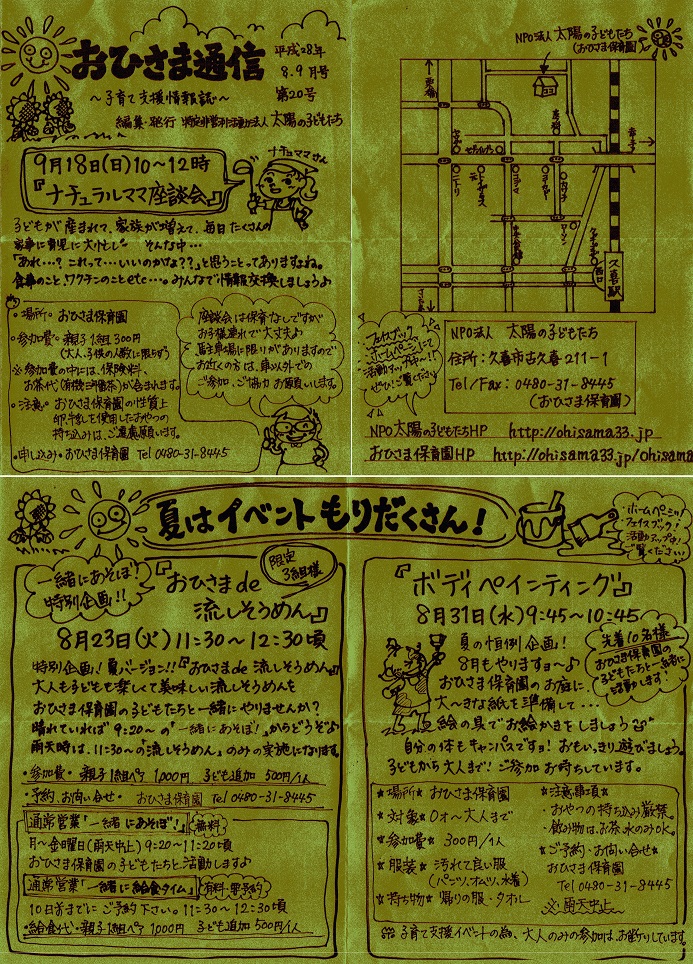 おひさま通信
平成28年
8.9月号
第20号
～子育て支援情報誌～
編集・発行 特定非営利活動法人 太陽の子どもたち
9月18日(日)10～12時
『ナチュラルママ座談会』
ナチュママさん
子どもが産まれて、家族が増えて、毎日たくさんの
家事に育児に大忙し。 そんな中…
「あれ…?これって…いいのかな??」と思うことってありますよね。
食事のこと、ワクチンのことetc…。みんなで情報交換しましょう♪
・場所・おひさま保育園
・参加費・親子1組300円
(大人、子供の人数に限らず)
※参加費の中には、保険料、
お茶代(有機三年番茶)が含まれます。
・注意・おひさま保育園の性質上
卵・乳を使用したおやつの
持ち込みは、ご遠慮願います。
・申し込み・おひさま保育園 Tel 0480-31-8445
座談会は保育なしですが
お子様連れで大丈夫♪
駐車場に限りがありますので
お近くの方は、車以外での
ご参加、ご協力お願いします。
NPO法人 太陽の子どもたち
(おひさま保育園)
ニトリ
久喜駅
西口
フェイスブック
ホームページにて
活動アップ中!!
ぜひご覧ください
NPO法人 太陽の子どもたち
住所:久喜市古久喜211-1
Tel/Fax: 0480-31-8445
(おひさま保育園)
NPO太陽の子どもたちHP http://ohisama33.jp
おひさま保育園HP http://ohisama33.jp/ohisama
夏はイベントもりだくさん!
ホームページ!
フェイスブック!
活動アップ中!
ご覧ください!
一緒にあそぼ!
特別企画!!
限定
3組様
『おひさまde
流しそうめん』
8月23日(火)11:30～12:30頃
特別企画!夏バージョン!!『おひさまde流しそうめん』
大人も子どもも楽しくて美味しい流しそうめんを
おひさま保育園の子どもたちと一緒にやりませんか?
晴れていれば9:20～の「一緒にあそぼ!」からどうぞ♪
雨天時は、11:30～の「流しそうめん」のみの実施になります。
・参加費・親子1組ペア1,000円 子ども追加500円/1人
・予約、お問い合せ・おひさま保育園 Tel 0480-31-8445
通常営業「一緒にあそぼ!」 無料
月～金曜日(雨天中止)9:20～11:20頃
おひさま保育園の子どもたちと活動しますよ
通常営業「一緒に給食タイム」 有料・要予約
10日前までにご予約下さい。11:30～12:30頃
・給食代・親子1組ペア1,000円 子ども追加500円/1人
『ボディペインティング』
8月31日(水)9:45～10:45
夏の恒例企画!
8月もやりますョ～♪
おひさま保育園のお庭に、
大～きな紙を準備して…
絵の具でお絵かきをしましょう
自分の体もキャンバスですョ!おもいっきり遊びましょう。
子どもから大人まで!ご参加お待ちしています。
先着10名様
おひさま保育園の
子どもたちと一緒に
活動します!
☆場所☆おひさま保育園
☆対象☆0才～大人まで
☆参加費☆300円/1人
☆服装☆汚れて良い服
(パンツ、オムツ、水着)
☆持ち物☆帰りの服・タオル
☆注意事項☆
・おやつの持ち込み厳禁。
・飲み物はお茶、水のみOK。
☆ご予約・お問い合せ☆
おひさま保育園
Tel 0480-31-8445
※雨天中止
子育て支援イベントの為、大人のみの参加は、お断りしています。